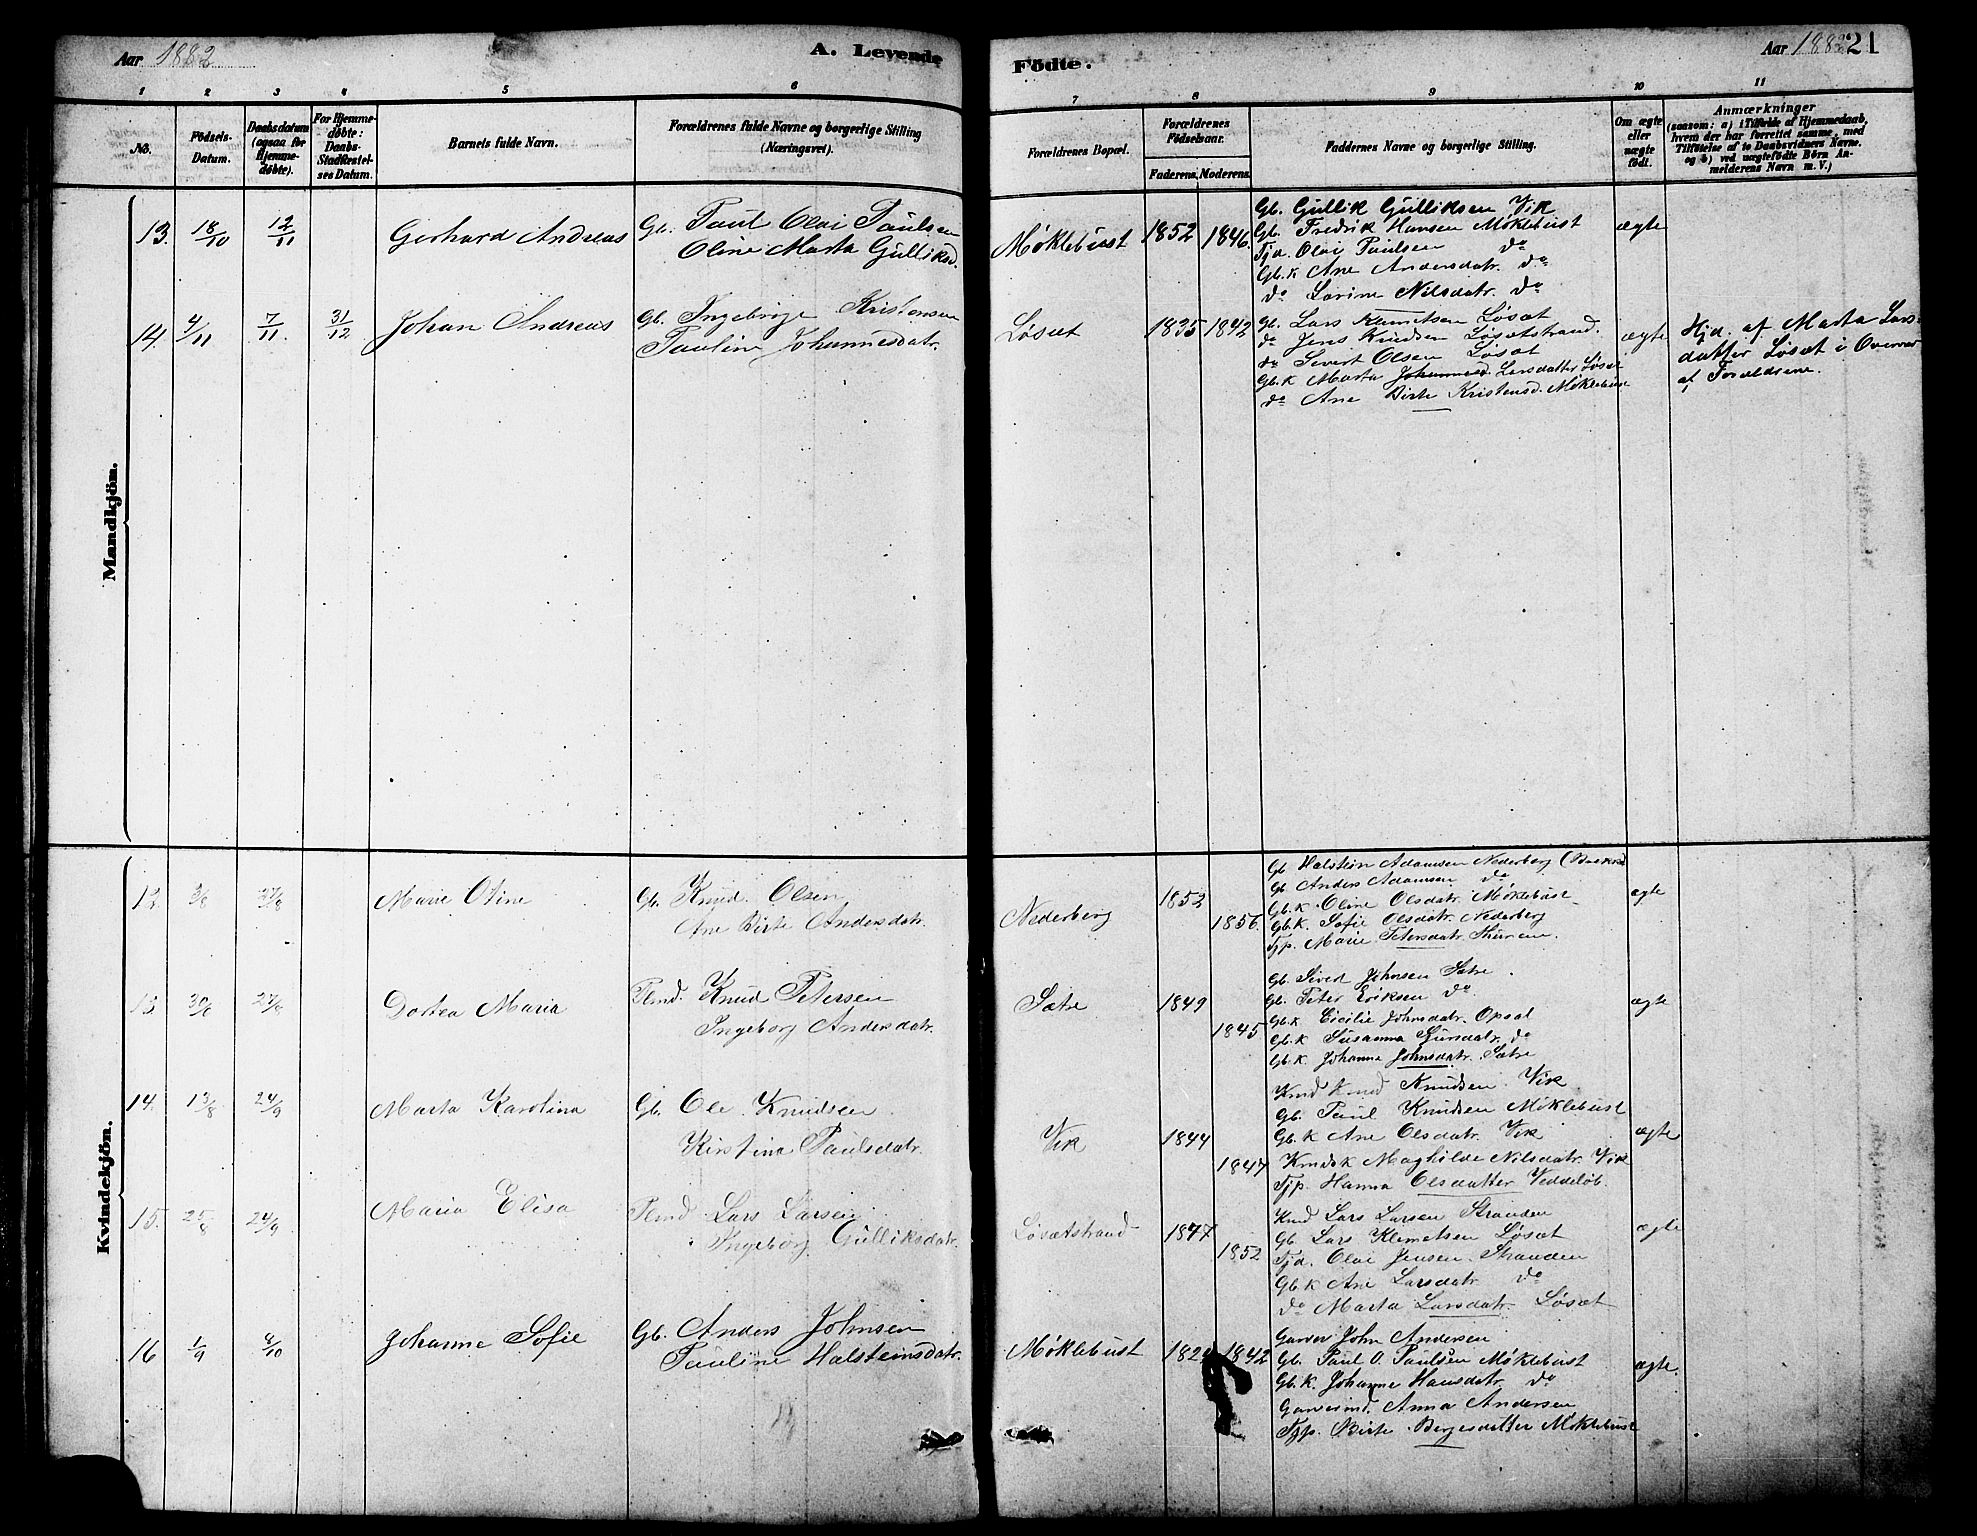 Aar 1882
A. Levende
Födte.
Aar 1882
21
1 2 3 4 5 6 7 8 9 10 11
No.
Födsels-
Datum.
Daabsdatum
(ogsaa for
Hjemme-
döbte).
For Hjemme-
døbte:
Daabs-
Stadfæstel-
ses Datum.
Barnets fulde Navn.
Forældrenes fulde Navne og borgerlige Stilling
(Næringsvei).
Forældrenes Bopæl.
Forældrenes
Födselsaar.
Faderens. Moderens.
Faddernes Navne og borgerlige Stilling.
Om ægte
eller
uægte
födt.
Anmærkninger
(saasom: a) i Tilfælde af Hjemmedaab,
hvem der har forrettet samme, med
Tilföielse af to Daabsvidners Navne.
og b) ved uægtefödte Börn An-
melderens Navn m.V.)
Mandkjön.
13. 18/10 12/11 Gerhard Andreas
Gb. Paul Olai Paulsen
Oline Marta Gulliksd.
Møklebust 1852 1846.
Gb. Gullik Gulliksen Vik
Gb. Fredrik Hansen Møklebust
Tjd. Olai Paulsen do
Gb.k Ane Andersdatr. do
do Larine Nilsdatr. do
ægte
14. 4/11 7/11. 31/12 Johan Andreas
Gb. Ingebrigt Kristensen
Pauline Johannesdatr.
Løsæt 1835 1842
Gb. Lars Klemetsen Løsæt
do Jens Knudsen Løsætstrand.
do Sivert Olsen Løsæt
Gb.k Marta Johannesd. Larsdatter Løsæt
do Ane Birte Kristensd. Møklebust
ægte
Hjd. af Marta Lars-
datter Løsæt i Overvær
af Forældrene.
Kvindekjön.
12. 3/8 27/8 Marie Oline
Gb. Knud Olsen
Ane Birte Andersdatr.
Nederberg 1852
1856.
Gb Halstein Adamsen Nederberg
Gb Anders Adamsen do
Gb.k Oline Olsdatr. Møklebust
Gb.k. Sofie Olsdatr. Nederberg
Tjp. Marie Petersdatr.
ægte
13 30/6 27/8 Dortea Maria
Knud Petersen
Ingeborg Andersdatr.
Sætre 1849
1845
Gb. Sivert Johnsen Sætre
Gb. Peter Eriksen do
Gb.k Cicilie Johnsdatr. Opsal
Gb.k Susanna Sjursdatr. do
Gb.k. Johanne Johnsdatr. Sætre
ægte
14. 13/8 24/9 Marta Karolina
Gb. Ole Knudsen
Kirstina Paulsdatr.
Vik 1844
1847
Knud Knudsen. Vik
Gb. Paul Knudsen Møklebust
Gb.k Ane Olsdatr. Vik
Maghilde Nilsdatr. Vik
Tjp. Hanna Olsdatter Veddeløb.
ægte
15. 25/8 24/9 Maria Elisa
Lars Larsen
Ingeborg Gulliksdatr.
Løsætstrand 1847
1852
Lars Larsen Stranden
Gb. Lars Klemetsen Løsæt
Tjd. Olai Jensen Stranden
Gb.k Ane Larsdatr. do
do Marta Larsdatr. Løsæt
ægte
16 1/9 8/10 Johanne Sofie
Gb. Anders Johnsen
Pauline Halsteinsdatr.
Møklebust 1842
Garver John Andersen
Gb. Paul O. Paulsen Møklebust
Gb.k. Johanne Hansdatr. do
Anna Andersen
Tjp. Birte Bergesdatter Møklebust
ægte.